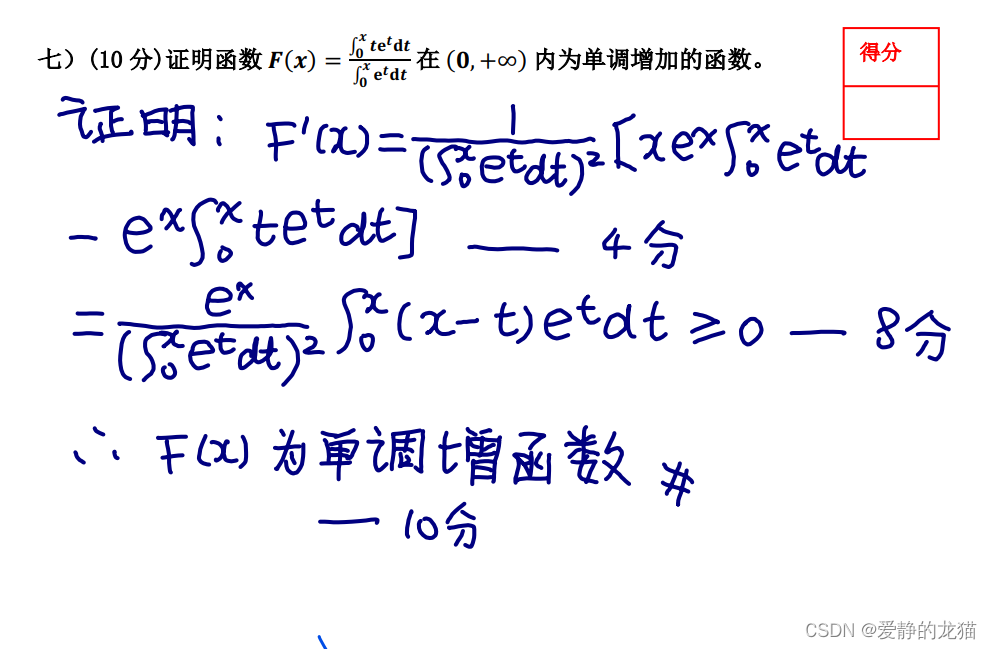 七）(10 分)证明函数 F(x) = ∫₀ˣ teᵗdt / ∫₀ˣ eᵗdt 在 (0, +∞) 内为单调增加的函数。
得分
证明: F'(x) = 1/(∫₀ˣ eᵗdt)² [xeˣ∫₀ˣ eᵗdt
- eˣ∫₀ˣ teᵗdt] —— 4分
= eˣ/(∫₀ˣ eᵗdt)² ∫₀ˣ (x-t)eᵗdt ≥ 0 — 8分
∴ F(x) 为单调增函数 #
— 10分
CSDN @爱静的龙猫